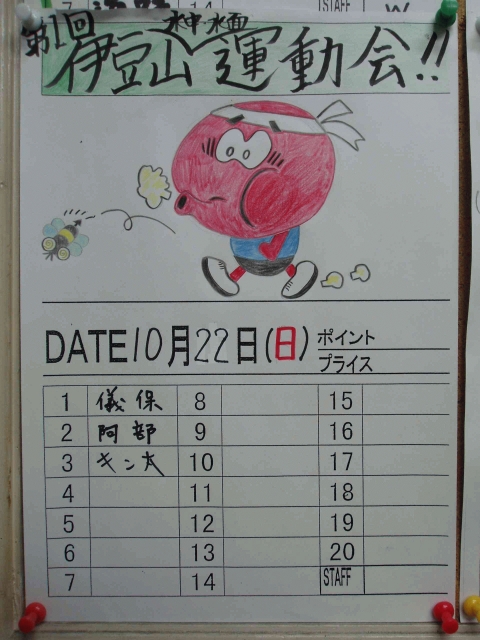 第1回 水中・水面
伊豆山運動会!!
DATE10月22日(日)
ポイント
プライス
1 儀保 8 15
2 阿部 9 16
3 キン太 10 17
4 11 18
5 12 19
6 13 20
7 14 STAFF